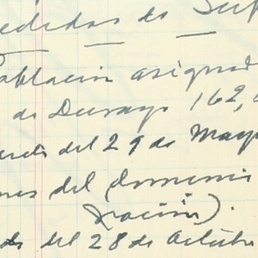 didas de Sup
oblacion asignad
de Durago 162,
erdo del 29 de Mayo
nes del (Domemi
nacion).
do del 28 de Octubre